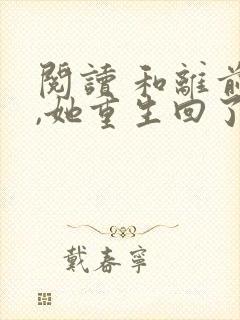 閱讀 和離前
,她重生回了
戴春寧